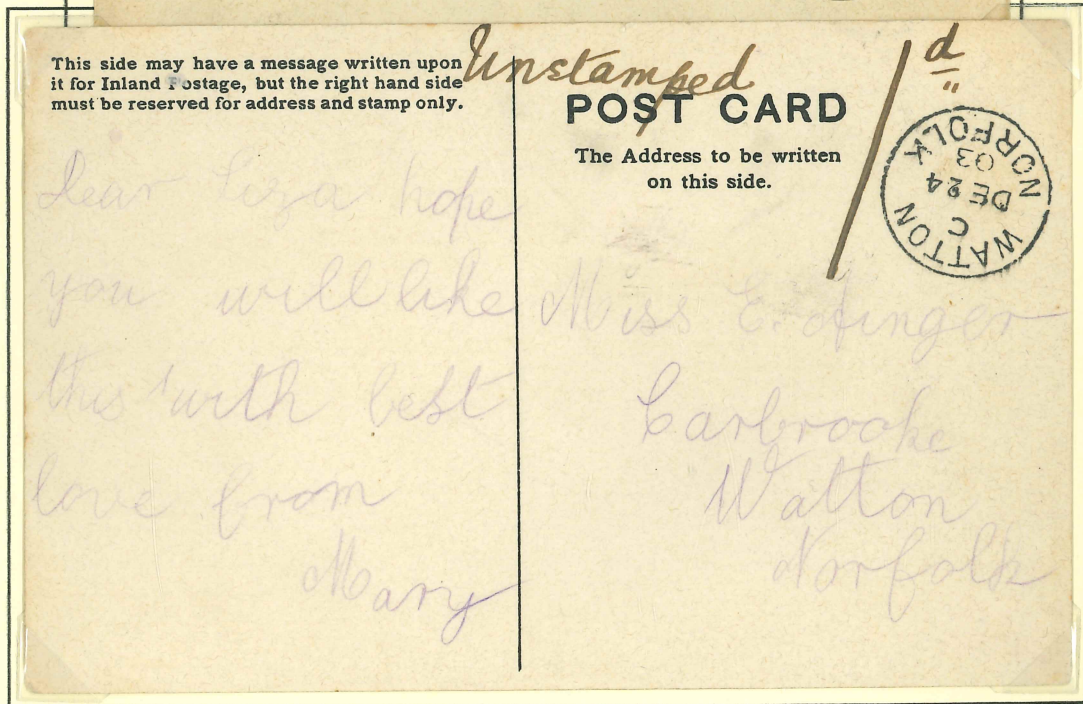 This side may have a message written upon
it for Inland Postage, but the right hand side
must be reserved for address and stamp only.
Unstamped
/ d
POST CARD
The Address to be written
on this side.
WATTON
C
DE 24
03
NORFOLK
Dear Liza hope
you will like
this with best
love from
Mary
Miss E.
Carbrooke
Watton
Norfolk